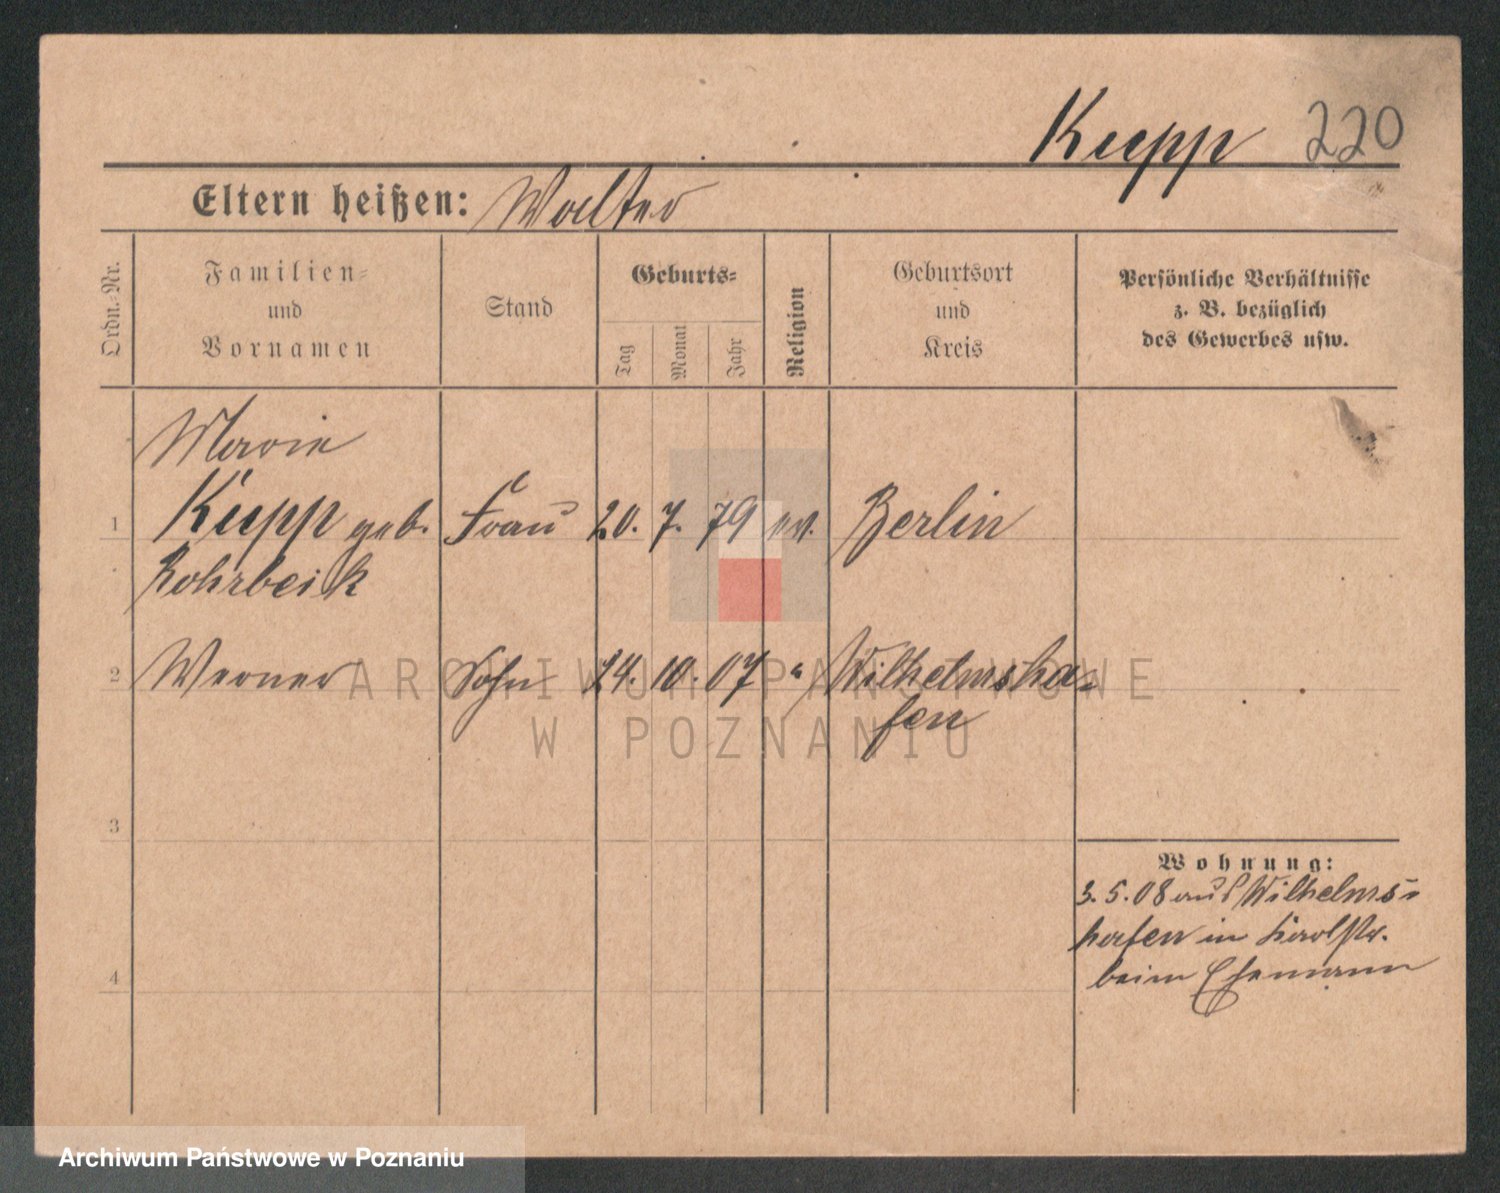 Kupp 220
Eltern heißen: Walter
Ordn.-Nr.
Familien-
und
Vornamen
Stand
Geburts-
Tag
Monat
Jahr
Religion
Geburtsort
und
Kreis
Persönliche Verhältnisse
z. B. bezüglich
des Gewerbes usw.
Marie
1 Kupp geb. Frau 20. 7. 79 ev. Berlin
Rohrbeck
2 Werner Sohn 24. 10. 07 " Wilhelmsha-
fen
3
4
Wohnung:
3. 5. 08 aus Wilhelms-
hafen in Karlstr.
beim Ehemann
ARCHIWUM PAŃSTWOWE
W POZNANIU
Archiwum Państwowe w Poznaniu